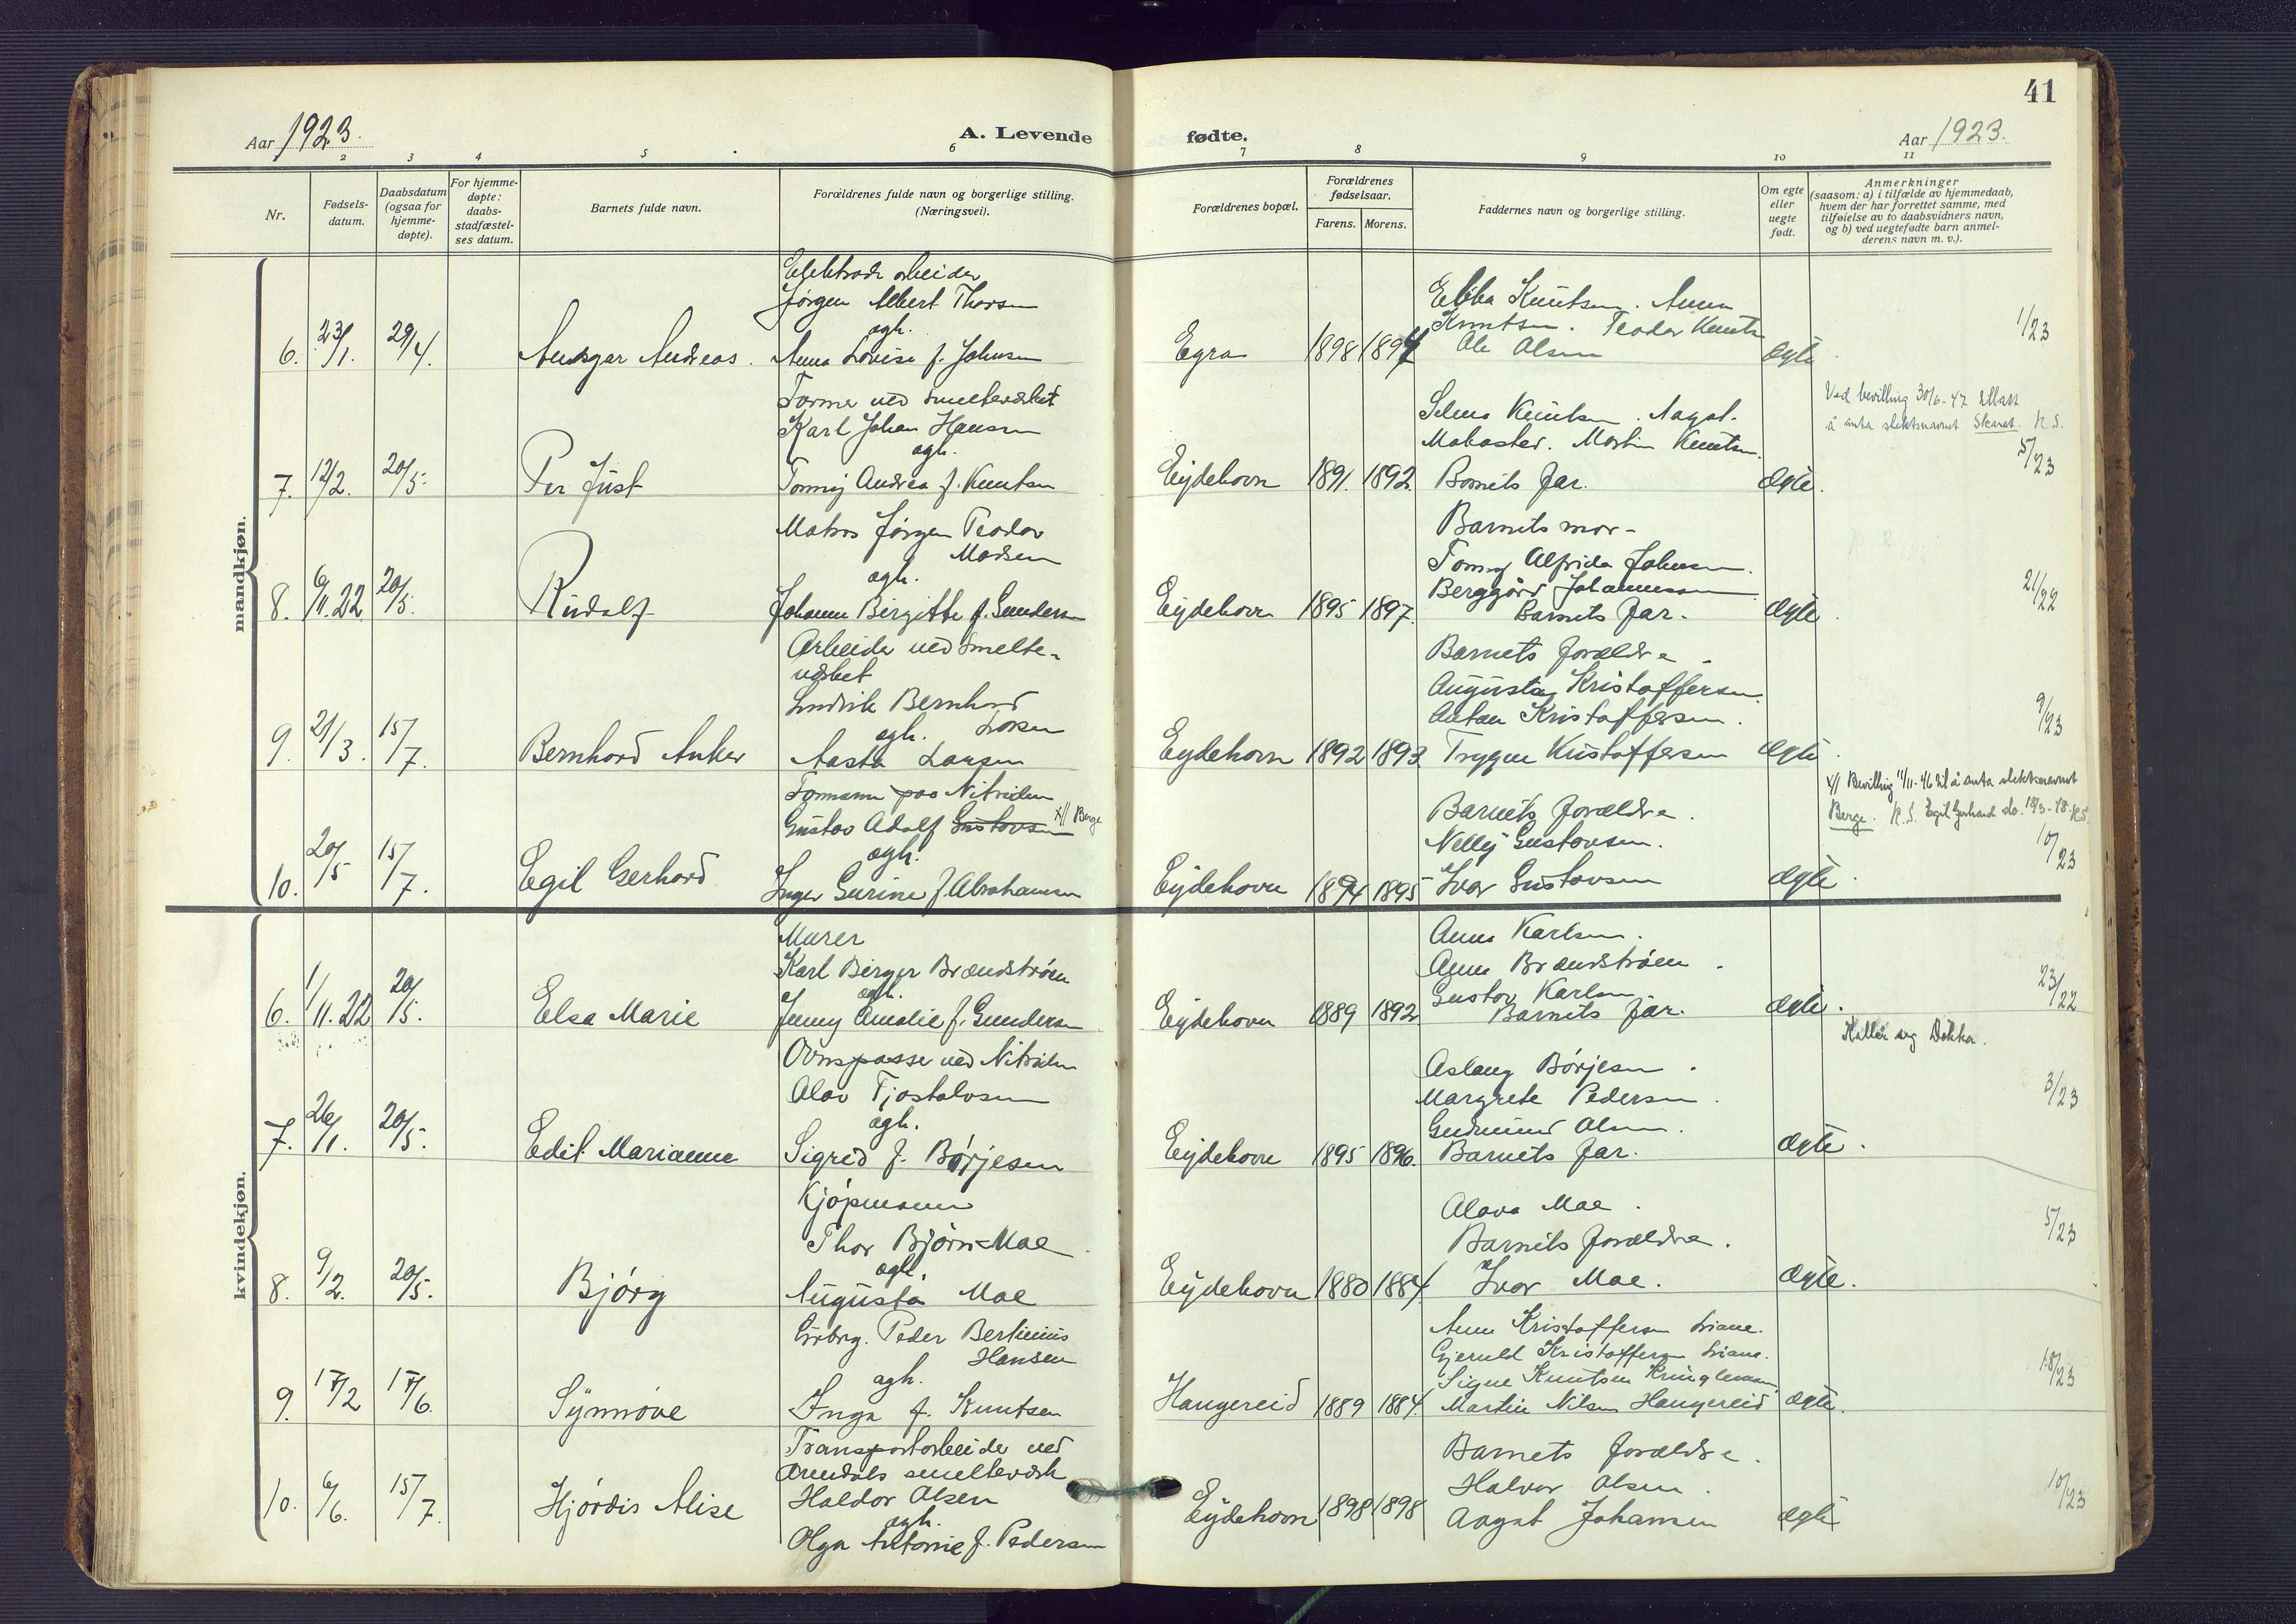 41
Aar 1923.
A. Levende fødte.
Aar 1923.
1 2 3 4 5 6 7 8 9 10 11
Nr.
Fødsels-
datum.
Daabsdatum
(ogsaa for
hjemme-
døpte).
For hjemme-
døpte:
daabs-
stadfæstel-
ses datum.
Barnets fulde navn.
Forældrenes fulde navn og borgerlige stilling.
(Næringsvei).
Forældrenes bopæl.
Forældrenes
fødselsaar.
Farens. Morens.
Faddernes navn og borgerlige stilling.
Om egte
eller
uegte
født.
Anmerkninger
(saasom: a) i tilfælde av hjemmedaab,
hvem der har forrettet samme, med
tilføielse av to daabsvidners navn,
og b) ved uegtefødte barn anmel-
derens navn m. v.).
mandkjøn.
6. 23/1. 29/4. Ansgar Andreas.
Jørgen Albert Thorsen
ægh.
Anna Lovise f. Johnsen
Egra 1898 1894
Ebba Knutsen. Anna
Knutsen. Teodor Knuts
Ole Olsen
ægte
1/23
7. 12/2. 20/5. Per Just
Former ved Smelteverket
Karl Johan Hansen
ægh.
Tomny Andrea f. Knutsen
Eydehovn 1891. 1892.
Selma Knutsen. Aagot
Martin Knutsen.
Barnets far.
ægte.
Ved bevilling 30/6-47 tillatt
å anta slektsnavnet Skaret. K.S.
5/23
8. 6/11.22 20/5. Rudolf
Matros Jørgen Teodor
Madsen
ægh.
Johanne Birgitte f. Gundersen
Eydehovn 1895 1897.
Barnets mor-
Tomny Alfrida Johnsen.
Berggård Johannessen
Barnets far.
ægte.
21/22
9. 21/3. 15/7. Bernhard Anker
Arbeider ved Smelte-
verket
Lundrik Bernhard
Larsen
ægh.
Aasta Larsen
Eydehovn 1892 1893
Barnets forældre.
Augusta Kristoffersen
Anton Kristoffersen.
Trygve Kristoffersen
ægte.
9/23
10. 20/5 15/7. Egil Gerhard
Formann paa Nitriden
Gustav Adolf Gustavsen x// Berge
ægh.
Inger Gurine f. Abrahamsen
Eydehovn 1894 1895
Barnets forældre.
Nelly Gustavsen.
Ivar Gustavsen
ægte.
x// Bevilling 11/11-46 til å anta slektsnavnet
Berge. K.S. Egil Gerhard do. 18/3-48. K.S.
10/23
kvindekjøn.
6. 1/11.22 20/5. Elsa Marie
Murer
Karl Birger Brændstrøm
ægh.
Jenny Amalie f. Gundersen
Eydehovn 1889 1892
Anna Karlsen.
Anna Brændstrøm.
Gustav Karlsen
Barnets far.
ægte.
23/22
7. 26/1. 20/5. Edit Marianne
Ovnspasser ved Nitriden
Olav Tjostolvsen
ægh.
Sigrid f. Børjesen
Eydehovn 1895 1896.
Aslaug Børjesen.
Margrete Pedersen.
Gudmund Olsen.
Barnets far.
ægte.
Kaller seg Dokka.
3/23
8. 9/2. 20/5. Bjørg
Kjøpmann
Thor Bjørn Moe
ægh.
Augusta Moe
Eydehovn 1880 1884
Olava Moe.
Barnets forældre.
Ivar Moe.
ægte.
5/23
9. 17/2 17/6. Synnøve
Peder Bertinius
Hansen
ægh.
Inga f. Knutsen
Haugereid 1889 1884.
Anna Kristoffersen
Kristoffersen
Signe Knutsen
Martin Nilsen Haugereid
ægte.
18/23
10. 6/6. 15/7. Hjørdis Alise
Transportarbeider ved
Arendals smelteverk
Haldor Olsen
ægh.
Olga Antonie f. Pedersen
Eydehovn 1898 1898
Barnets forældre.
Halvor Olsen.
Aagot Johansen
ægte
10/23